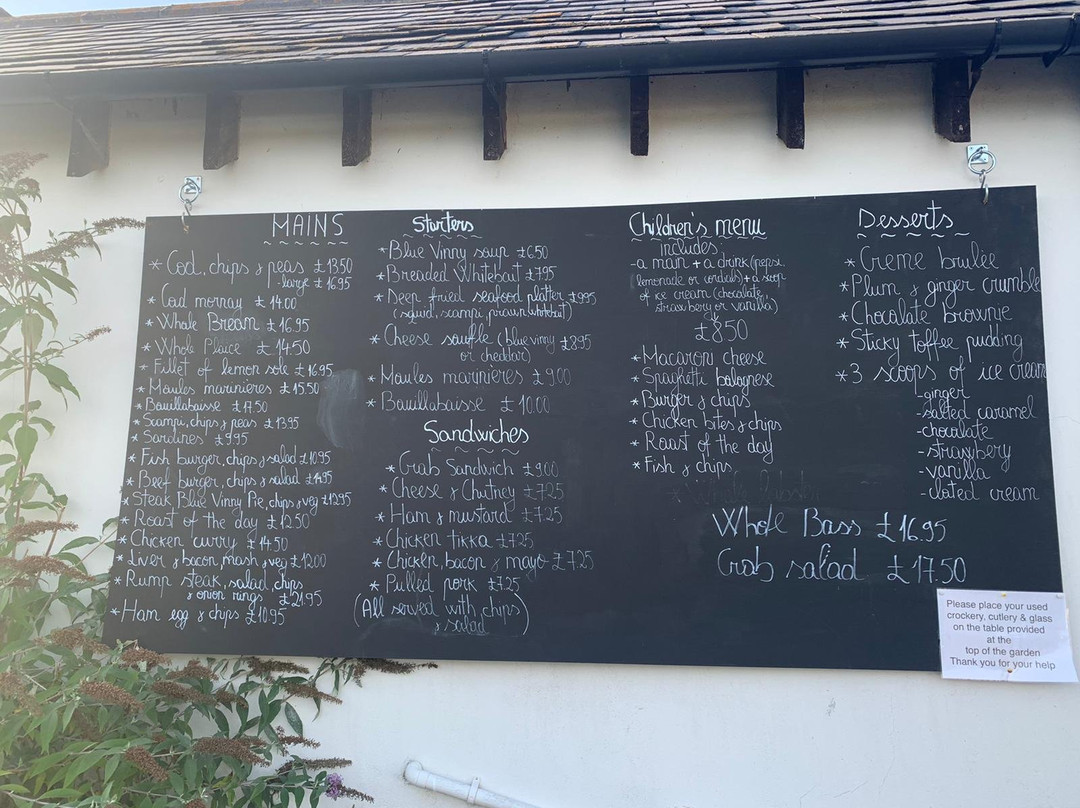 MAINS
* Cod, chips & peas £13.50
- large £16.95
* Cod mornay £14.00
* Whole Bream £16.95
* Whole Plaice £14.50
- Fillet of lemon sole £16.95
* Moules marinières £15.50
* Bouillabaisse £17.50
* Scampi, chips & peas £13.95
* Sardines £9.95
* Fish burger, chips & salad £10.95
* Beef burger, chips & salad £14.95
* Steak Blue Vinny Pie, chips & veg £12.95
* Roast of the day £12.50
* Chicken curry £14.50
* Liver & bacon, mash & veg £12.00
* Rump steak, salad, chips
& onion rings £21.95
* Ham egg & chips £10.95
Starters
* Blue Vinny soup £6.50
* Breaded Whitebait £7.95
* Deep fried seafood platter £9.95
(squid, scampi, prawn, whitebait)
* Cheese souffle (blue vinny £8.95
or cheddar)
* Moules marinières £9.00
* Bouillabaisse £10.00
Sandwiches
* Crab Sandwich £9.00
* Cheese & Chutney £7.25
* Ham & mustard £7.25
* Chicken tikka £7.25
* Chicken, bacon & mayo £7.25
* Pulled pork £7.25
(All served with chips
& salad)
Children's menu
includes:
- a main + a drink (pepsi
lemonade or cordials) + a scoop
of ice cream (chocolate,
strawberry or vanilla)
£8.50
* Macaroni cheese
* Spaghetti bolognese
* Burger & chips
* Chicken bites & chips
* Roast of the day
* Fish & chips
Whole Bass £16.95
Crab salad £17.50
Desserts
* Creme brulée
* Plum & ginger crumble
* Chocolate brownie
* Sticky toffee pudding
* 3 scoops of ice cream
- ginger
- salted caramel
- chocolate
- strawberry
- vanilla
- cloted cream
Please place your used
crockery, cutlery & glass
on the table provided
at the
top of the garden
Thank you for your help